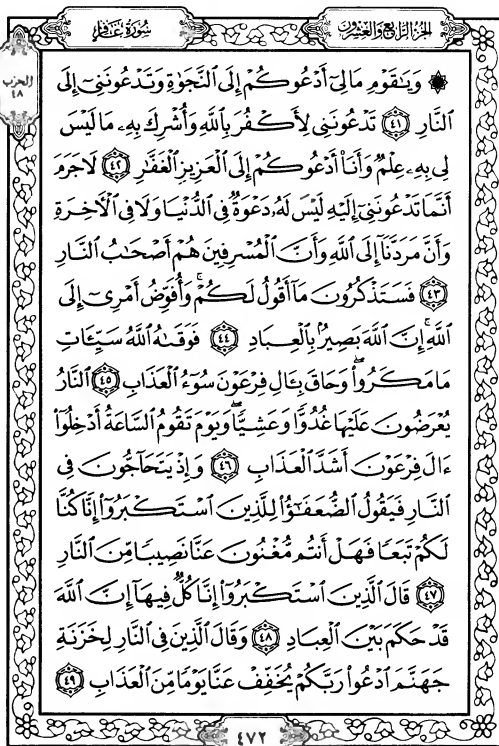 الجزء الرابع والعشرون سورة غافر
الحزب
٤٨
۞ وَيَٰقَوْمِ مَالِىٓ أَدْعُوكُمْ إِلَى ٱلنَّجَوٰةِ وَتَدْعُونَنِىٓ إِلَى
ٱلنَّارِ ٤١ تَدْعُونَنِى لِأَكْفُرَ بِٱللَّهِ وَأُشْرِكَ بِهِۦ مَا لَيْسَ
لِى بِهِۦ عِلْمٌ وَأَنَا۠ أَدْعُوكُمْ إِلَى ٱلْعَزِيزِ ٱلْغَفَّٰرِ ٤٢ لَا جَرَمَ
أَنَّمَا تَدْعُونَنِىٓ إِلَيْهِ لَيْسَ لَهُۥ دَعْوَةٌ فِى ٱلدُّنْيَا وَلَا فِى ٱلْءَاخِرَةِ
وَأَنَّ مَرَدَّنَآ إِلَى ٱللَّهِ وَأَنَّ ٱلْمُسْرِفِينَ هُمْ أَصْحَٰبُ ٱلنَّارِ
٤٣ فَسَتَذْكُرُونَ مَآ أَقُولُ لَكُمْ ۚ وَأُفَوِّضُ أَمْرِىٓ إِلَى
ٱللَّهِ ۚ إِنَّ ٱللَّهَ بَصِيرٌۢ بِٱلْعِبَادِ ٤٤ فَوَقَىٰهُ ٱللَّهُ سَيِّـَٔاتِ
مَا مَكَرُوا۟ ۖ وَحَاقَ بِـَٔالِ فِرْعَوْنَ سُوٓءُ ٱلْعَذَابِ ٤٥ ٱلنَّارُ
يُعْرَضُونَ عَلَيْهَا غُدُوًّا وَعَشِيًّا ۖ وَيَوْمَ تَقُومُ ٱلسَّاعَةُ أَدْخِلُوٓا۟
ءَالَ فِرْعَوْنَ أَشَدَّ ٱلْعَذَابِ ٤٦ وَإِذْ يَتَحَآجُّونَ فِى
ٱلنَّارِ فَيَقُولُ ٱلضُّعَفَٰٓؤُا۟ لِلَّذِينَ ٱسْتَكْبَرُوٓا۟ إِنَّا كُنَّا
لَكُمْ تَبَعًا فَهَلْ أَنتُم مُّغْنُونَ عَنَّا نَصِيبًا مِّنَ ٱلنَّارِ
٤٧ قَالَ ٱلَّذِينَ ٱسْتَكْبَرُوٓا۟ إِنَّا كُلٌّ فِيهَآ إِنَّ ٱللَّهَ
قَدْ حَكَمَ بَيْنَ ٱلْعِبَادِ ٤٨ وَقَالَ ٱلَّذِينَ فِى ٱلنَّارِ لِخَزَنَةِ
جَهَنَّمَ ٱدْعُوا۟ رَبَّكُمْ يُخَفِّفْ عَنَّا يَوْمًا مِّنَ ٱلْعَذَابِ ٤٩
٤٧٢